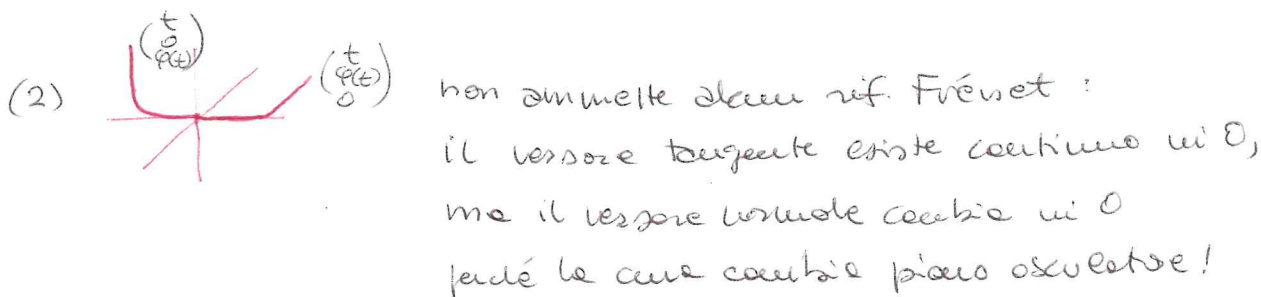 (2) (t 0 φ(t)) (t φ(t) 0) non ammette alcun rif. Frénet :
il versore tangente esiste continuo in 0,
ma il versore normale cambia in 0
perché la curva cambia piano osculatore!